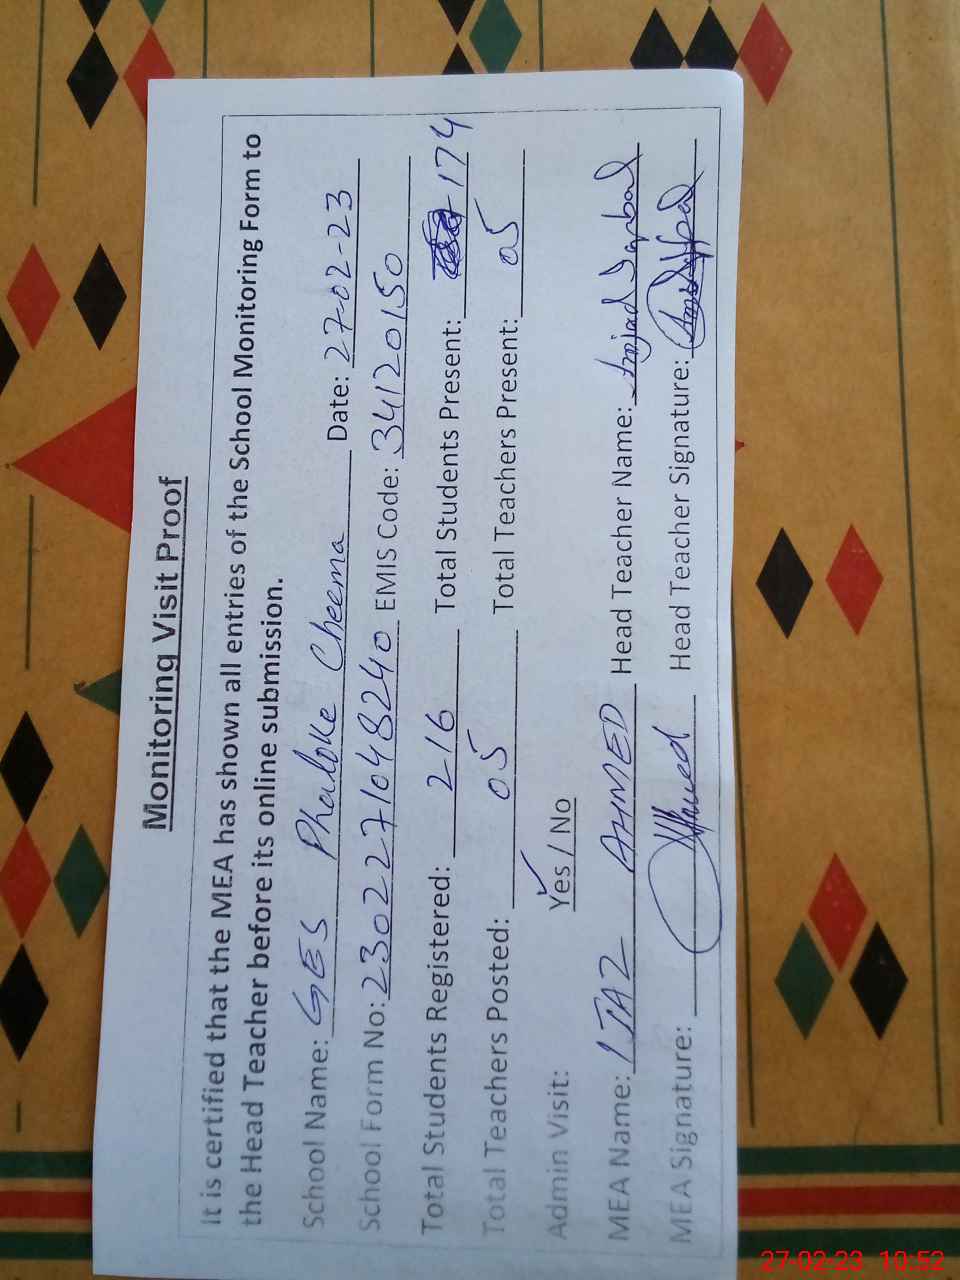 Monitoring Visit Proof
It is certified that the MEA has shown all entries of the School Monitoring Form to
the Head Teacher before its online submission.
School Name: GES Phaloke Cheema Date: 27-02-23
School Form No: 2302271048240 EMIS Code: 34120150
Total Students Registered: 216 Total Students Present: 174
Total Teachers Posted: 05 Total Teachers Present: 05
Admin Visit: Yes / No
MEA Name: IJAZ AHMED Head Teacher Name: Amjad Iqbal
MEA Signature: Ahmed Head Teacher Signature:
27-02-23 10:52